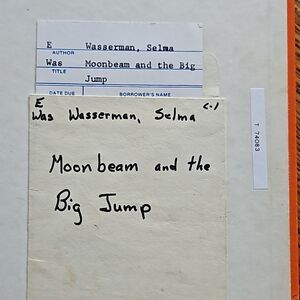 E Wasserman, Selma
AUTHOR
Was Moonbeam and the Big
TITLE
Jump
DATE DUE BORROWER'S NAME
E
Was Wasserman, Selma c-1
Moonbeam and the
Big Jump
T 74083